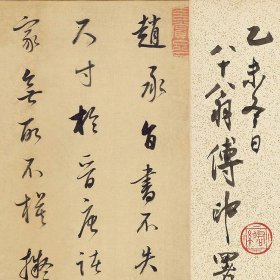 乙未冬日
八十八翁傅印署
趙承旨書不失
尺寸於晉唐諸
家無所不擬